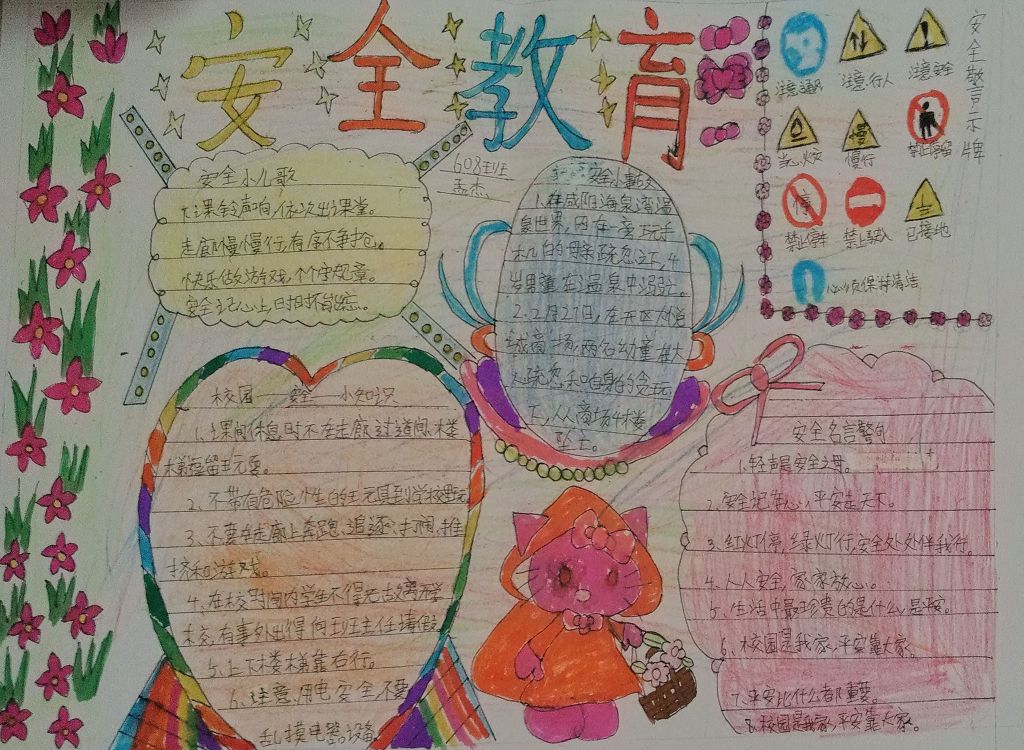 安全教育
608班
孟杰
安全小儿歌
下课铃声响,依次出课堂。
走廊慢慢行,有序不争抢。
快乐做游戏,个个守规章。
安全记心上,日日不能忘。
安全小事故
1.在咸阳海泉湾温
泉世界,因在旁玩手
机的母亲疏忽之下,4
岁男童在温泉中溺亡。
2.2月27日,在开区大悦
城商场,两名幼童在大
人疏忽和自身的贪玩
下,从商场4楼
坠亡。
安全警示牌
注意通风
注意行人
注意安全
当心火灾
慢
慢行
禁止停留
停
禁止停车
禁止驶入
已接地
必须保持清洁
校园——安全——小知识
1、课间休息时不在走廊过道间、楼
梯逗留玩耍。
2、不带有危险性的玩具到学校玩
3、不要在走廊上奔跑、追逐、打闹、推
挤和游戏。
4、在校时间内学生不得无故离开学
校,有事外出得向班主任请假
5、上下楼梯靠右行。
6、注意用电安全不要
乱摸电器设备
安全名言警句
1.轻声是安全之母。
2、安全记在心,平安走天下。
3、红灯停,绿灯行,安全处处伴我行。
4、人人安全,家家放心。
5、生活中最珍贵的是什么,是平安。
6、校园是我家,平安靠大家。
7、平安比什么都重要。
8、校园是我家,平安靠大家。